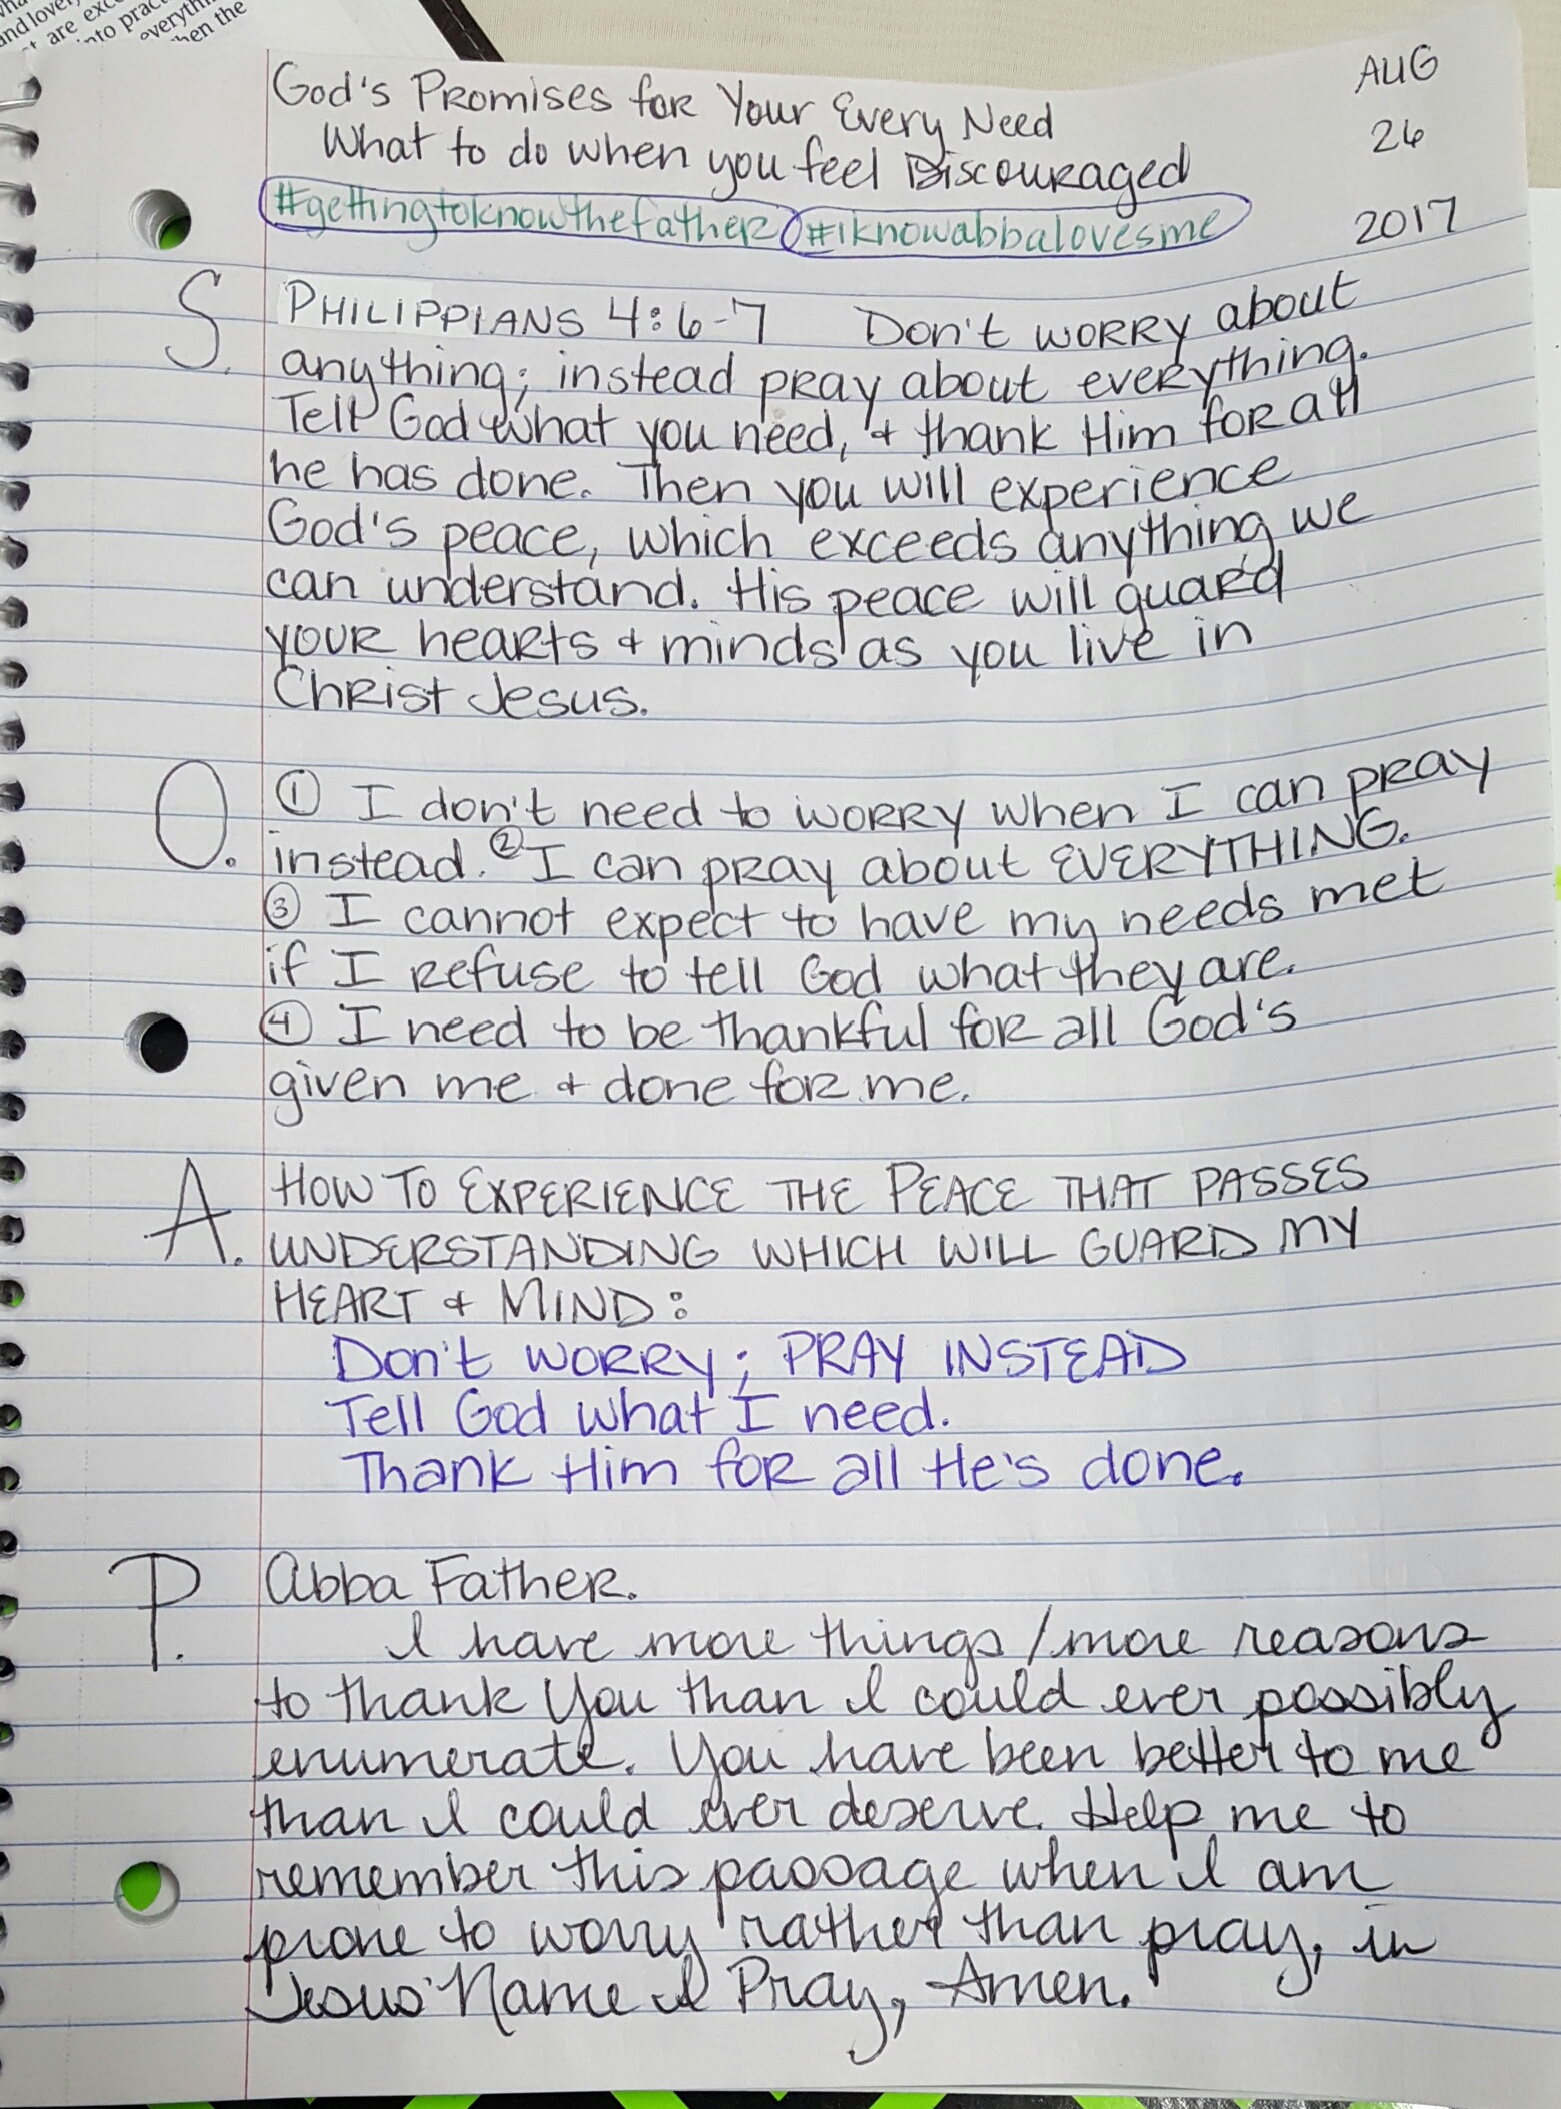 and lovely
are exc
into prac
everythin
hen the
God's Promises for Your Every Need
What to do when you feel Discouraged
#gettingtoknowthefather #iknowabbalovesme
AUG
26
2017
S. PHILIPPIANS 4:6-7 Don't worry about
anything; instead pray about everything.
Tell God what you need, & thank Him for all
he has done. Then you will experience
God's peace, which exceeds anything we
can understand. His peace will guard
your hearts & minds as you live in
Christ Jesus.
O. ① I don't need to worry when I can pray
instead. ② I can pray about EVERYTHING.
③ I cannot expect to have my needs met
if I refuse to tell God what they are.
④ I need to be thankful for all God's
given me & done for me.
A. HOW TO EXPERIENCE THE PEACE THAT PASSES
UNDERSTANDING WHICH WILL GUARD MY
HEART & MIND:
Don't worry; PRAY INSTEAD
Tell God what I need.
Thank Him for all He's done.
P. Abba Father.
I have more things/more reasons
to thank You than I could ever possibly
enumerate. You have been better to me
than I could ever deserve. Help me to
remember this passage when I am
prone to worry rather than pray, in
Jesus' Name I Pray, Amen.